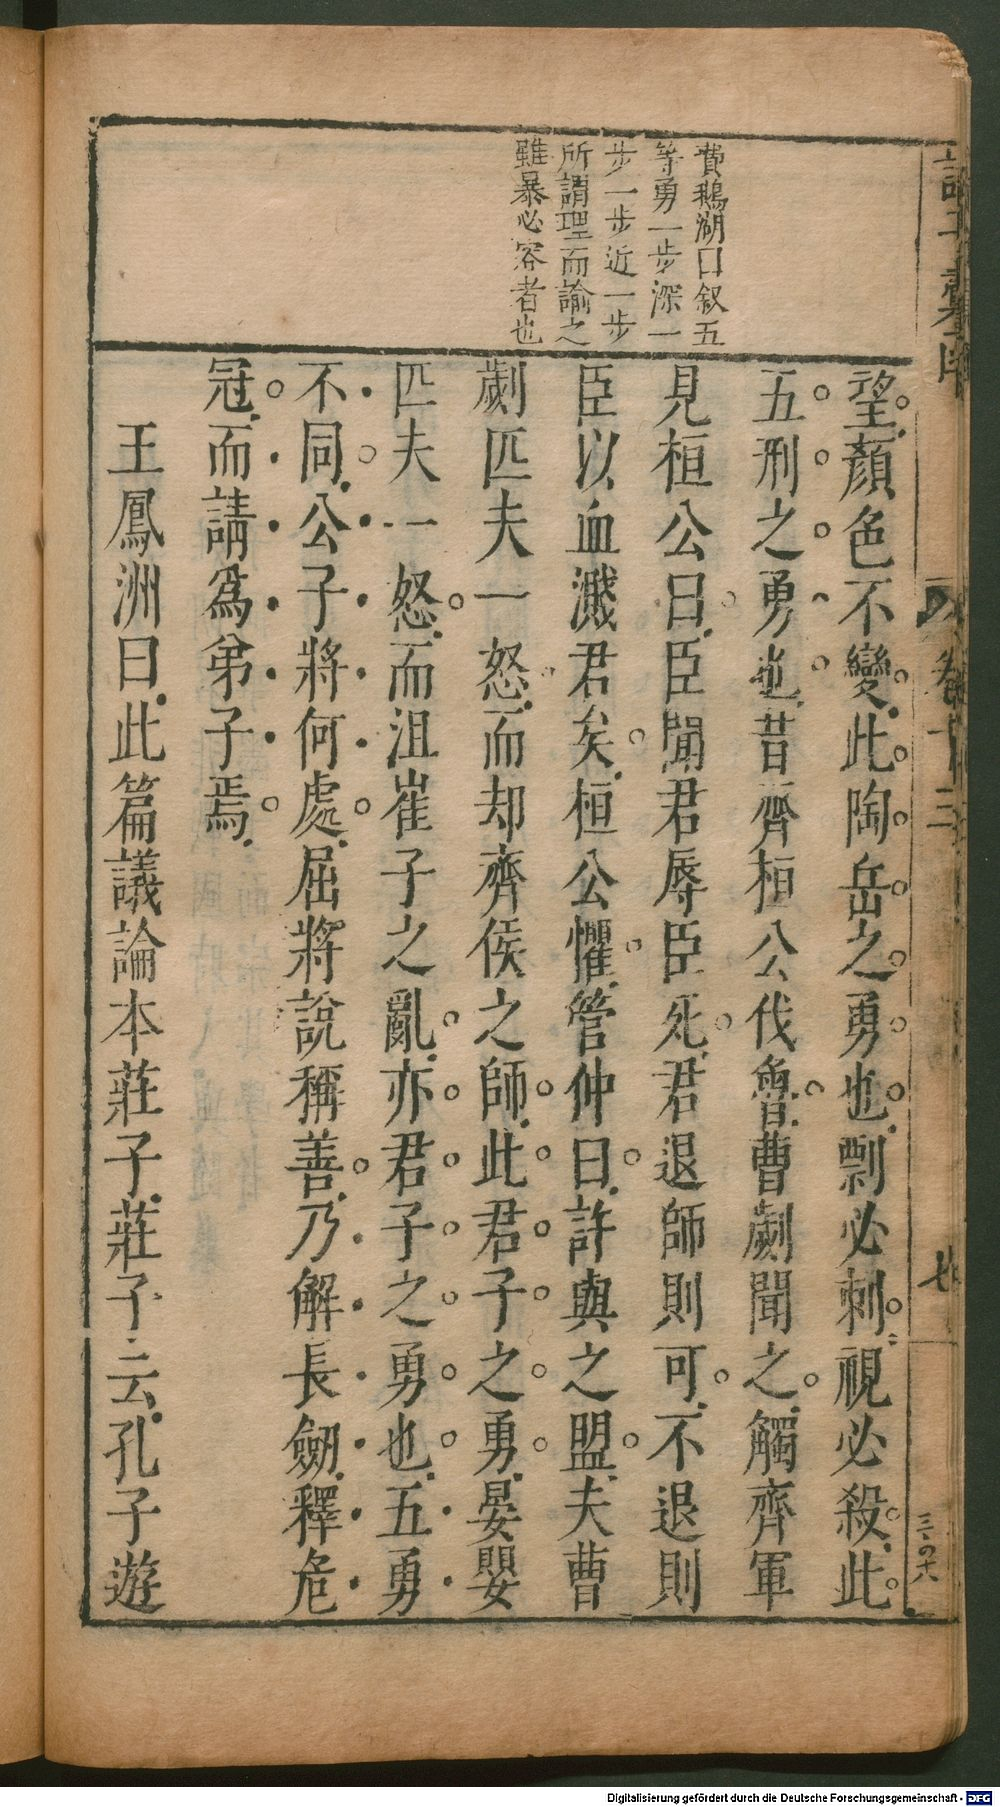 費鵝湖口叙五
等勇一步深一
步一步近一步
所謂理而諭之
雖暴必容者也
望顏色不變此陶岳之勇也剽必刺視必殺此
五刑之勇也昔齊桓公伐魯曹劌聞之觸齊軍
見桓公曰臣聞君辱臣死君退師則可不退則
臣以血濺君矣桓公懼管仲曰許與之盟夫曹
劌匹夫一怒而却齊侯之師此君子之勇晏嬰
匹夫一怒而沮崔子之亂亦君子之勇也五勇
不同公子將何處屈將說稱善乃解長劒釋危
冠而請爲弟子焉
王鳳洲曰此篇議論本莊子莊子云孔子遊
卷十三
三〇十八
Digitalisierung gefördert durch die Deutsche Forschungsgemeinschaft - DFG